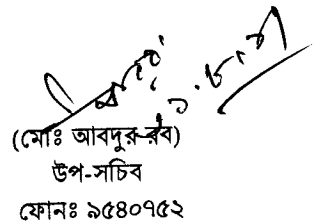 (মোঃ আবদুর রব)
উপ-সচিব
ফোনঃ ৯৫৪০৭৫২